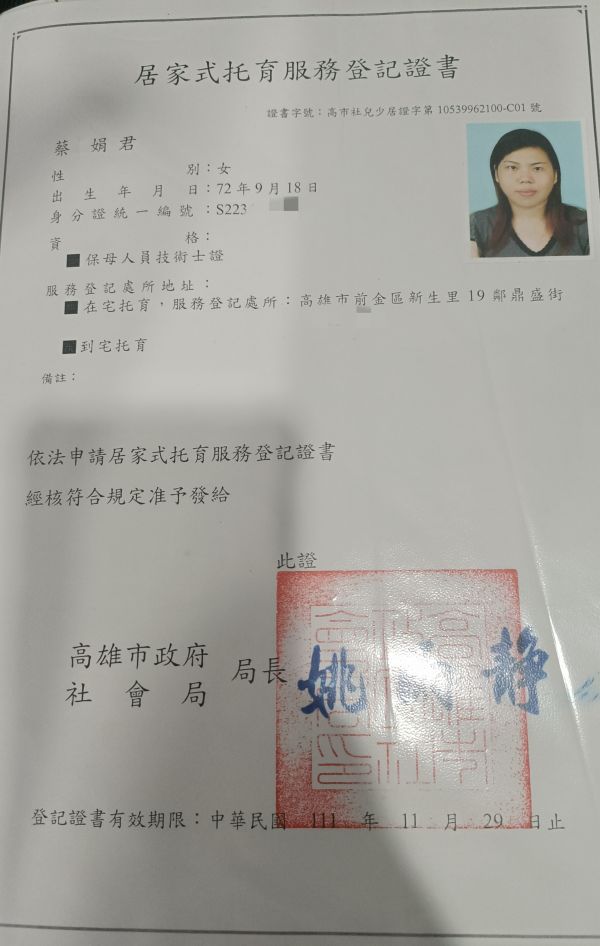 居家式托育服務登記證書
證書字號：高市社兒少居證字第 10539962100-C01 號
蔡娟君
性別：女
出生年月日：72 年 9 月 18 日
身分證統一編號：S223
資格：
保母人員技術士證
服務登記處所地址：
在宅托育，服務登記處所：高雄市前金區新生里 19 鄰鼎盛街
到宅托育
備註：
依法申請居家式托育服務登記證書
經核符合規定准予發給
此證
高雄市政府
社會局
局長 姚 靜
登記證書有效期限：中華民國 111 年 11 月 29 日止